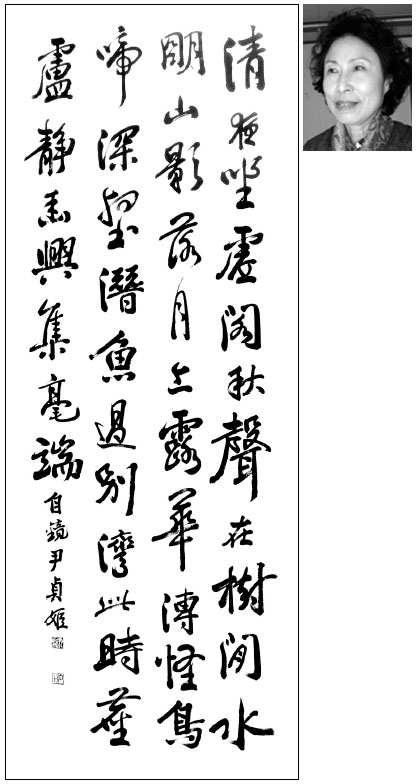 清夜坐虛閣秋聲在樹間水
明山影落月上露華漙怪鳥
啼深壑潛魚過別灣此時塵
慮靜幽興集毫端
自鏡尹貞姬